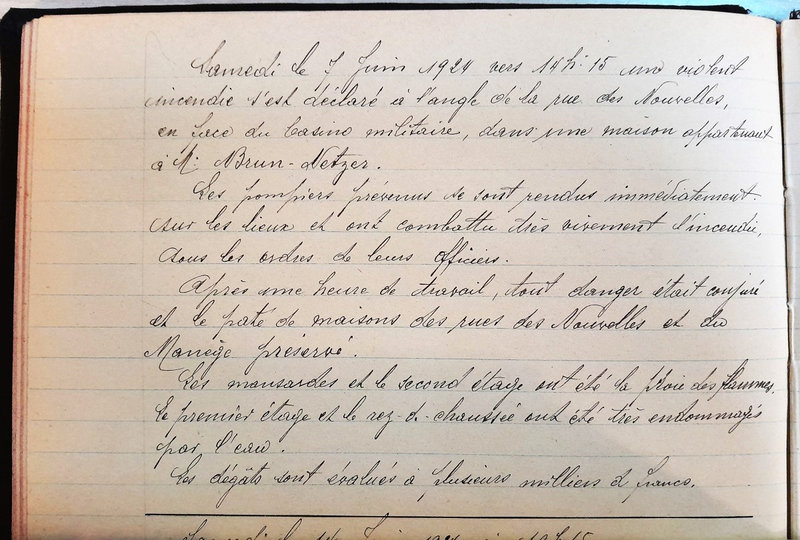 Samedi le 7 Juin 1924 vers 14h.15 un violent
incendie s'est déclaré à l'angle de la rue des Nouvelles,
en face du Casino militaire, dans une maison appartenant
à M. Brun-Netzer.
Les pompiers prévenus se sont rendus immédiatement
sur les lieux et ont combattu très vivement l'incendie,
sous les ordres de leurs officiers.
Après une heure de travail, tout danger était conjuré
et le paté de maisons des rues des Nouvelles et du
Manège préservé.
Les mansardes et le second étage ont été la proie des flammes,
le premier étage et le rez-d-chaussée ont été très endommagés
par l'eau.
Les dégâts sont évalués à plusieurs milliers d francs.
Samedi le Juin